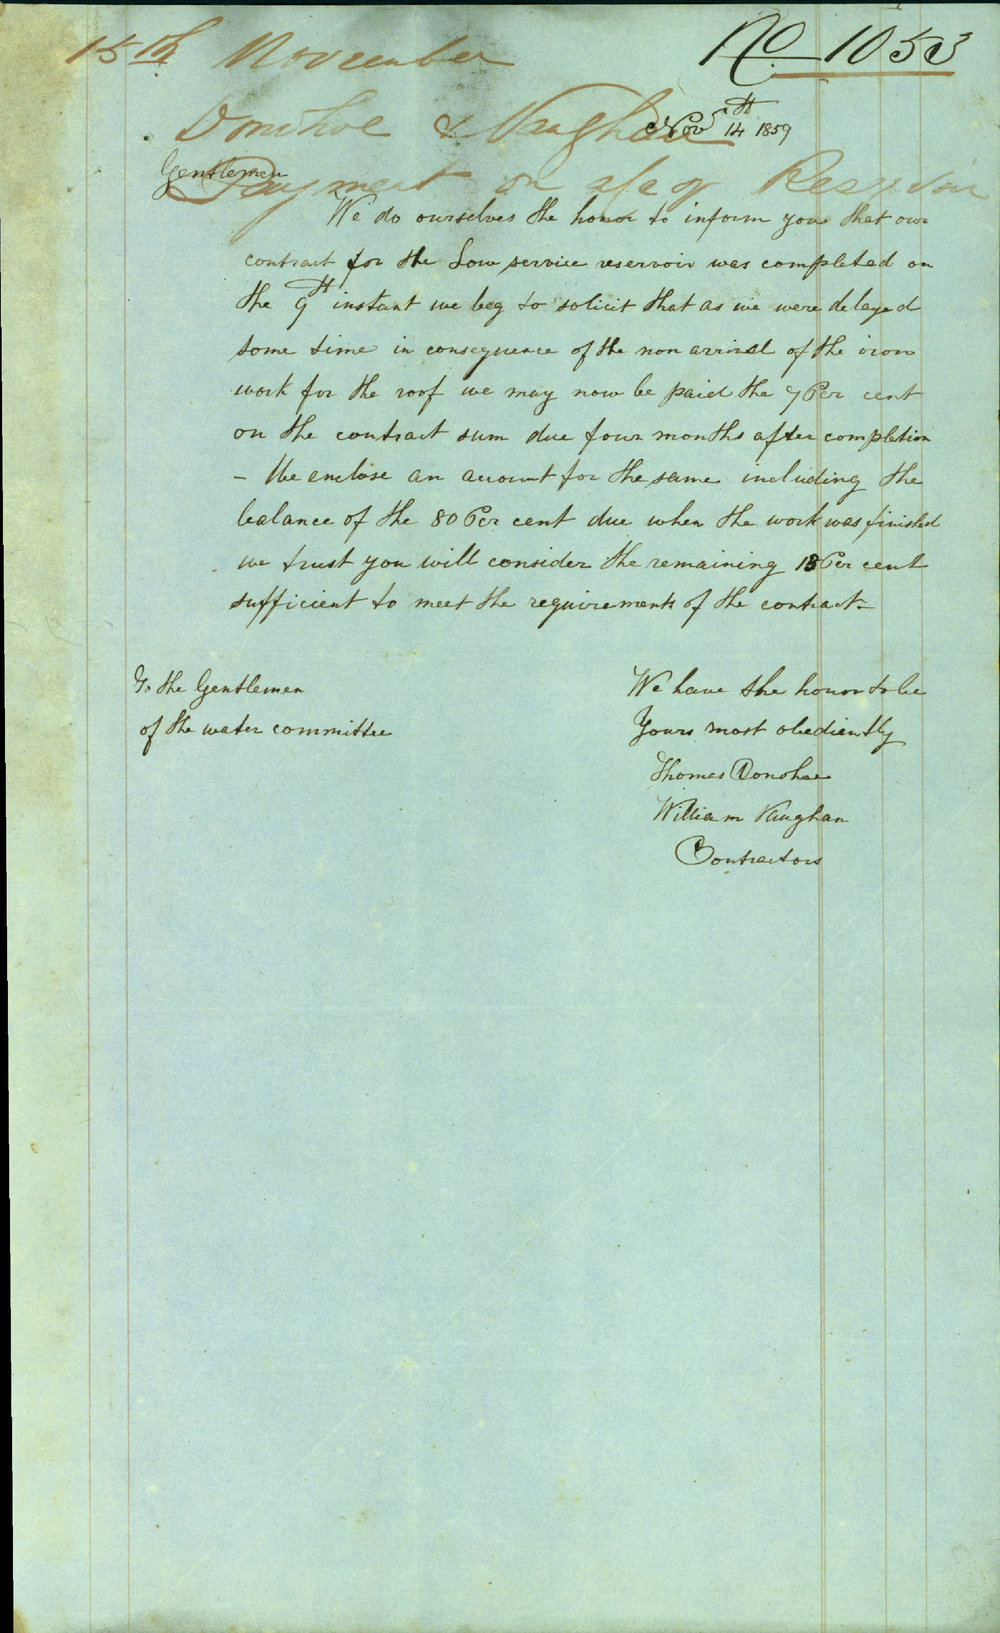 15th November
No. 1053
Donohoe & Vaughan
Nov 14th 1859
Gentlemen
Payment on a/c of Reservoir
We do ourselves the honor to inform you that our
contract for the Low service reservoir was completed on
the 9th instant we beg to solicit that as we were delayed
some time in consequence of the non arrival of the iron
work for the roof we may now be paid the 7 Per cent
on the contract sum due four months after completion
– We enclose an account for the same including the
balance of the 80 Per cent due when the work was finished
we trust you will consider the remaining 13 Per cent
sufficient to meet the requirements of the contract –
To the Gentlemen
of the water committee
We have the honor to be
Yours most obediently
Thomas Donohoe
William Vaughan
Contractors